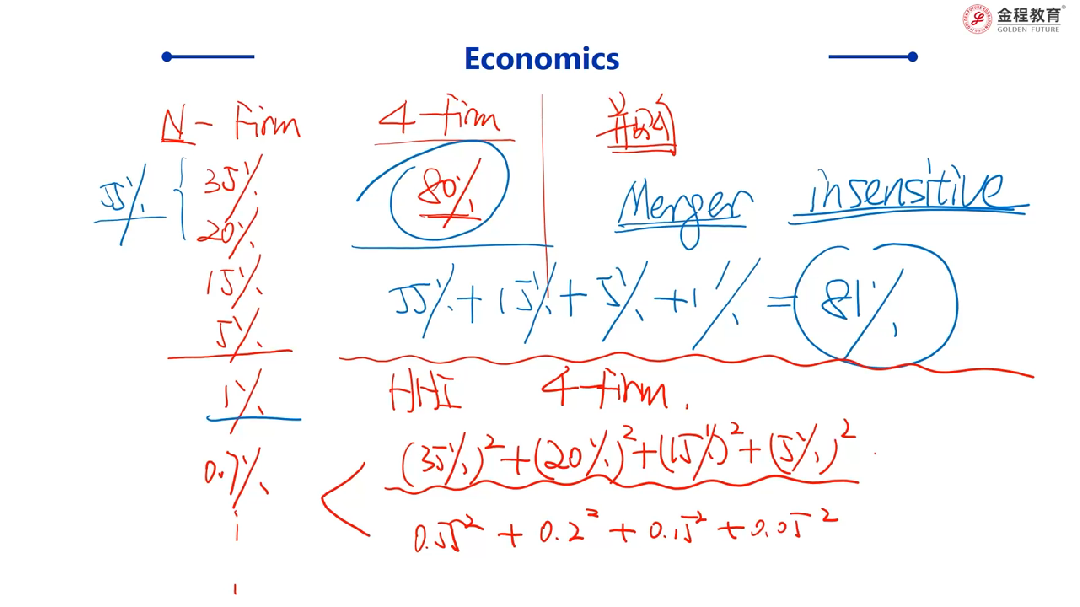 金程教育®
GOLDEN FUTURE
Economics
N-Firm 4-firm 并购
55% { 35% 80% Merger insensitive
20%
15% 55% + 15% + 5% + 1% = 81%
5%
1% HHI 4-firm.
0.7% (35%)² + (20%)² + (15%)² + (5%)²
0.55² + 0.2² + 0.15² + 0.05²